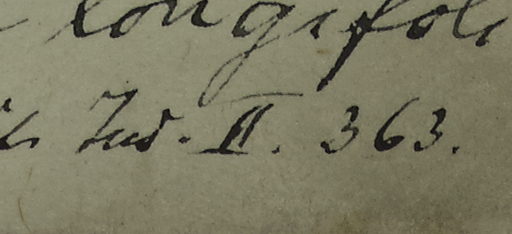 longifoli
Ind. II. 363.